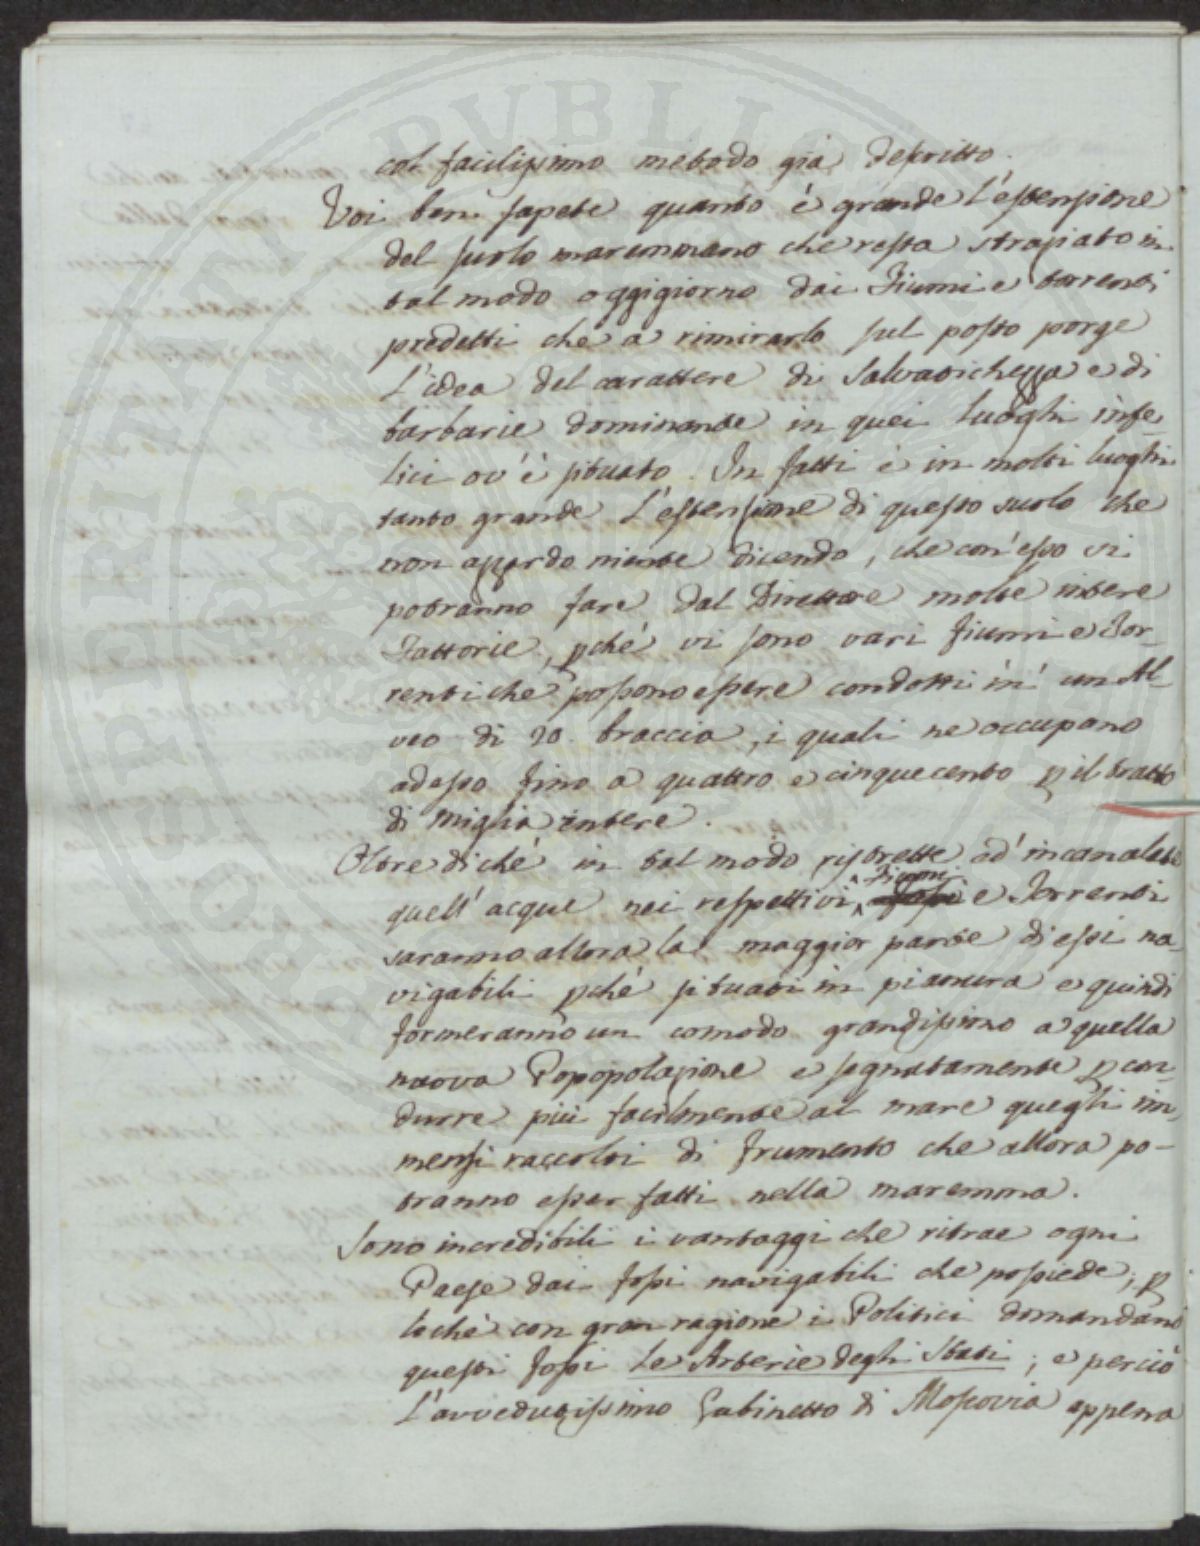 col facilissimo metodo già descritto.
Voi ben sapete quanto è grande l'estensione
del suolo maremmano che resta straziato in
tal modo oggigiorno dai Fiumi e torrenti
predetti che a rimirarlo sul posto porge
l'idea del carattere di Salvatichezza e di
barbarie dominante in quei luoghi infe-
lici ov'è situato. In fatti è in molti luoghi
tanto grande l'estensione di questo suolo che
non azzardo niente dicendo, che con'esso vi
potranno fare dal Direttore molte intere
Fattorie, pchè vi sono vari fiumi e Tor-
renti che possono essere condotti in' un Al-
veo di 20. braccia, i quali ne occupano
adesso fino a quattro e cinquecento p il tratto
di miglia intere.
Oltre di chè in tal modo ristrette ed' incanalate
quell' acque nei respettivi Fiumi e Torrenti
saranno allora la maggior parte di essi na-
vigabili pchè situati in pianura e quindi
formeranno un comodo grandissimo a quella
nuova Popopolazione e segnatamente p con-
durre più facilmente al mare quegli im-
mensi raccolti di frumento che allora po-
tranno esser fatti nella maremma.
Sono incredibili i vantaggi che ritrae ogni
Paese dai fossi navigabili che possiede; p
lochè con gran ragione i Politici domandano
questi fossi le Arterie degli Stati; e perciò
l'avvedutissimo Gabinetto di Moscovia appena
PROSPERITATI PVBLICAE